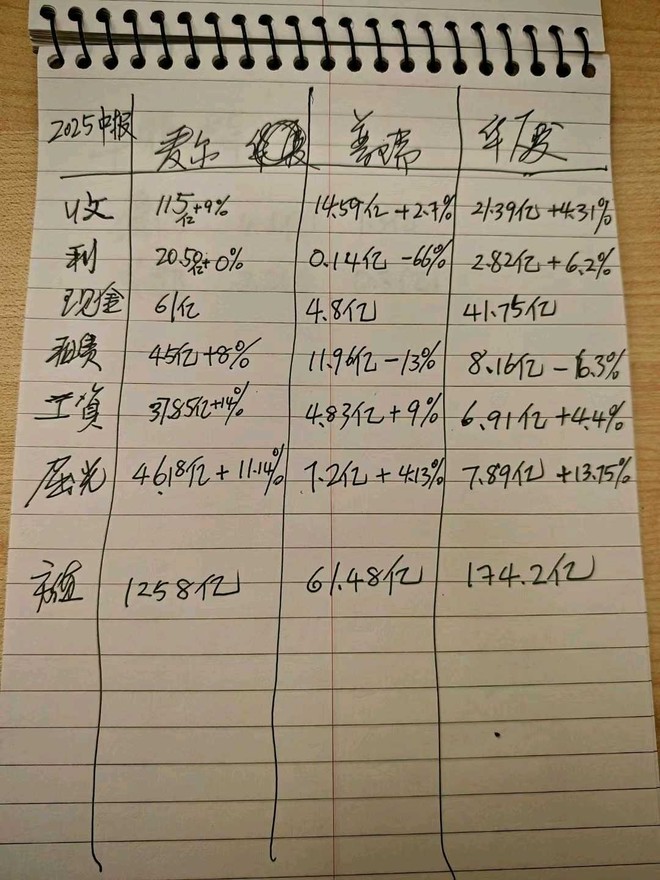 2025中报 爱尔 普瑞 华厦
收 115亿+9% 14.59亿+2.7% 21.39亿+4.31%
利 20.50亿+0% 0.14亿-66% 2.82亿+6.2%
现金 61亿 4.8亿 41.75亿
租赁 45亿+8% 11.96亿-13% 8.16亿-6.3%
工資 37.85亿+14% 4.83亿+9% 6.91亿+4.4%
屈光 46.18亿+11.14% 7.2亿+4.13% 7.89亿+13.75%
市值 1258亿 61.48亿 174.2亿